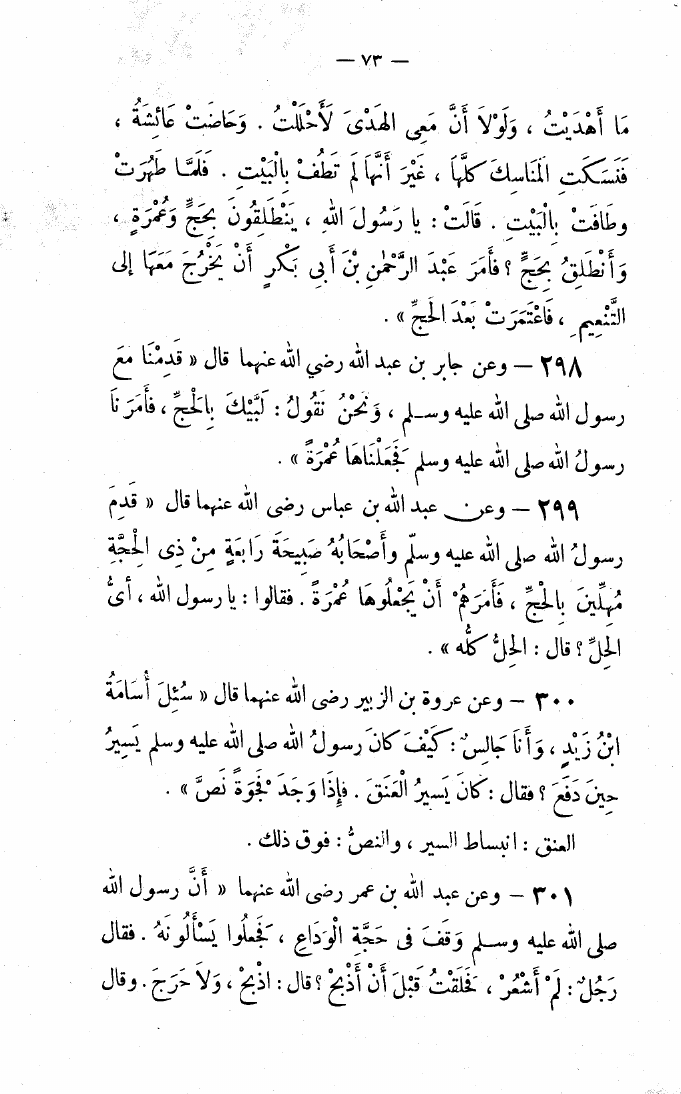 — ٧٣ —
مَا أَهْدَيْتُ ، وَلَوْلاَ أَنَّ مَعِى الهَدْىَ لَأَحْلَلْتُ . وَحَاضَتْ عَائِشَةُ ،
فَنَسَكَتِ المَنَاسِكَ كلَّهَا ، غَيْرَ أَنَّهَا لَمْ تَطُفْ بِالْبَيْتِ . فَلَمَّا طَهُرَتْ
وطَافَتْ بِالْبَيْتِ . قَالَتْ : يا رَسُولَ اللهِ ، يَنْطَلِقُونَ بِحَجٍّ وَعُمْرَةٍ ،
وَأَنْطَلِقُ بِحَجٍّ ؟ فأَمَرَ عَبْدَ الرَّحْمٰنِ بْنَ أَبِى بَكْرٍ أَنْ يَخْرُجَ مَعَهَا إلى
التَّنْعِيمِ ، فَاعْتَمَرَتْ بَعْدَ الحَجِّ » .
٢٩٨ — وعن جابر بن عبد الله رضي الله عنهما قال « قَدِمْنَا مَعَ
رسول الله صلى الله عليه وسلم ، وَنَحْنُ نَقُولُ : لَبَّيْكَ بِالحَجِّ ، فأَمَرَنَا
رسولُ الله صلى الله عليه وسلم فَجَعَلْنَاهَا عُمْرَةً » .
٢٩٩ — وعن عبد الله بن عباس رضى الله عنهما قال « قَدِمَ
رسولُ الله صلى الله عليه وسلّم وأَصْحَابُهُ صَبِيحَةَ رَابِعَةٍ مِنْ ذِى الْحِجَّةِ
مُهِلِّينَ بِالْحَجِّ ، فَأَمَرَهُمْ أَنْ يَجْعَلُوهَا عُمْرَةً . فقالوا : يا رسول الله ، أىُّ
الحِلِّ ؟ قال : الحِلُّ كلُّه » .
٣٠٠ — وعن عروة بن الزبير رضى الله عنهما قال « سُئِلَ أُسَامَةُ
ابْنُ زَيْدٍ ، وَأَنَا جَالِسٌ : كَيْفَ كَانَ رسولُ الله صلى الله عليه وسلم يَسِيرُ
حِينَ دَفَعَ ؟ فقال : كَانَ يَسيرُ الْعَنَقَ . فإِذَا وَجَدَ فَجْوَةً نَصَّ » .
العنق : انبساط السير ، والنصُّ : فوق ذلك .
٣٠١ — وعن عبد الله بن عمر رضى الله عنهما « أَنَّ رسول الله
صلى الله عليه وسلم وَقَفَ فى حَجَّةِ الْوَدَاعِ ، فَجَعلُوا يَسْأَلُونَهُ . فقال
رَجُلٌ : لَمْ أَشْعُرْ ، فَحَلَقْتُ قَبْلَ أَنْ أَذْبَحَ ؟ قال : اذْبَحْ ، وَلاَ حَرَجَ . وقال